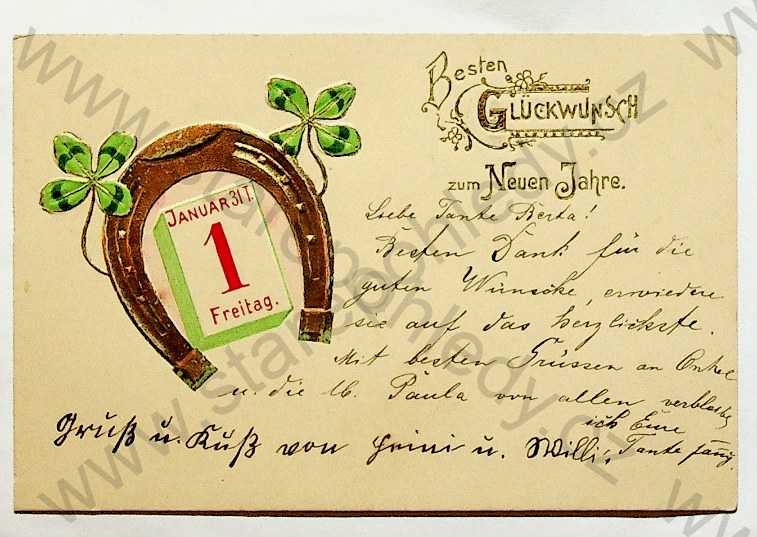 Besten
Glückwunsch
zum Neuen Jahre.
Januar 31 T.
1
Freitag.
Liebe Tante Berta!
Besten Dank für die
guten Wünsche, erwiedere
sie auf das herzlichste.
Mit besten Grüssen an Onkel
u. die lb. Paula von allen verbleibe
ich Eure
Tante
Gruß u. Kuß von Heini u. Willi.
www.starepohledy.cz